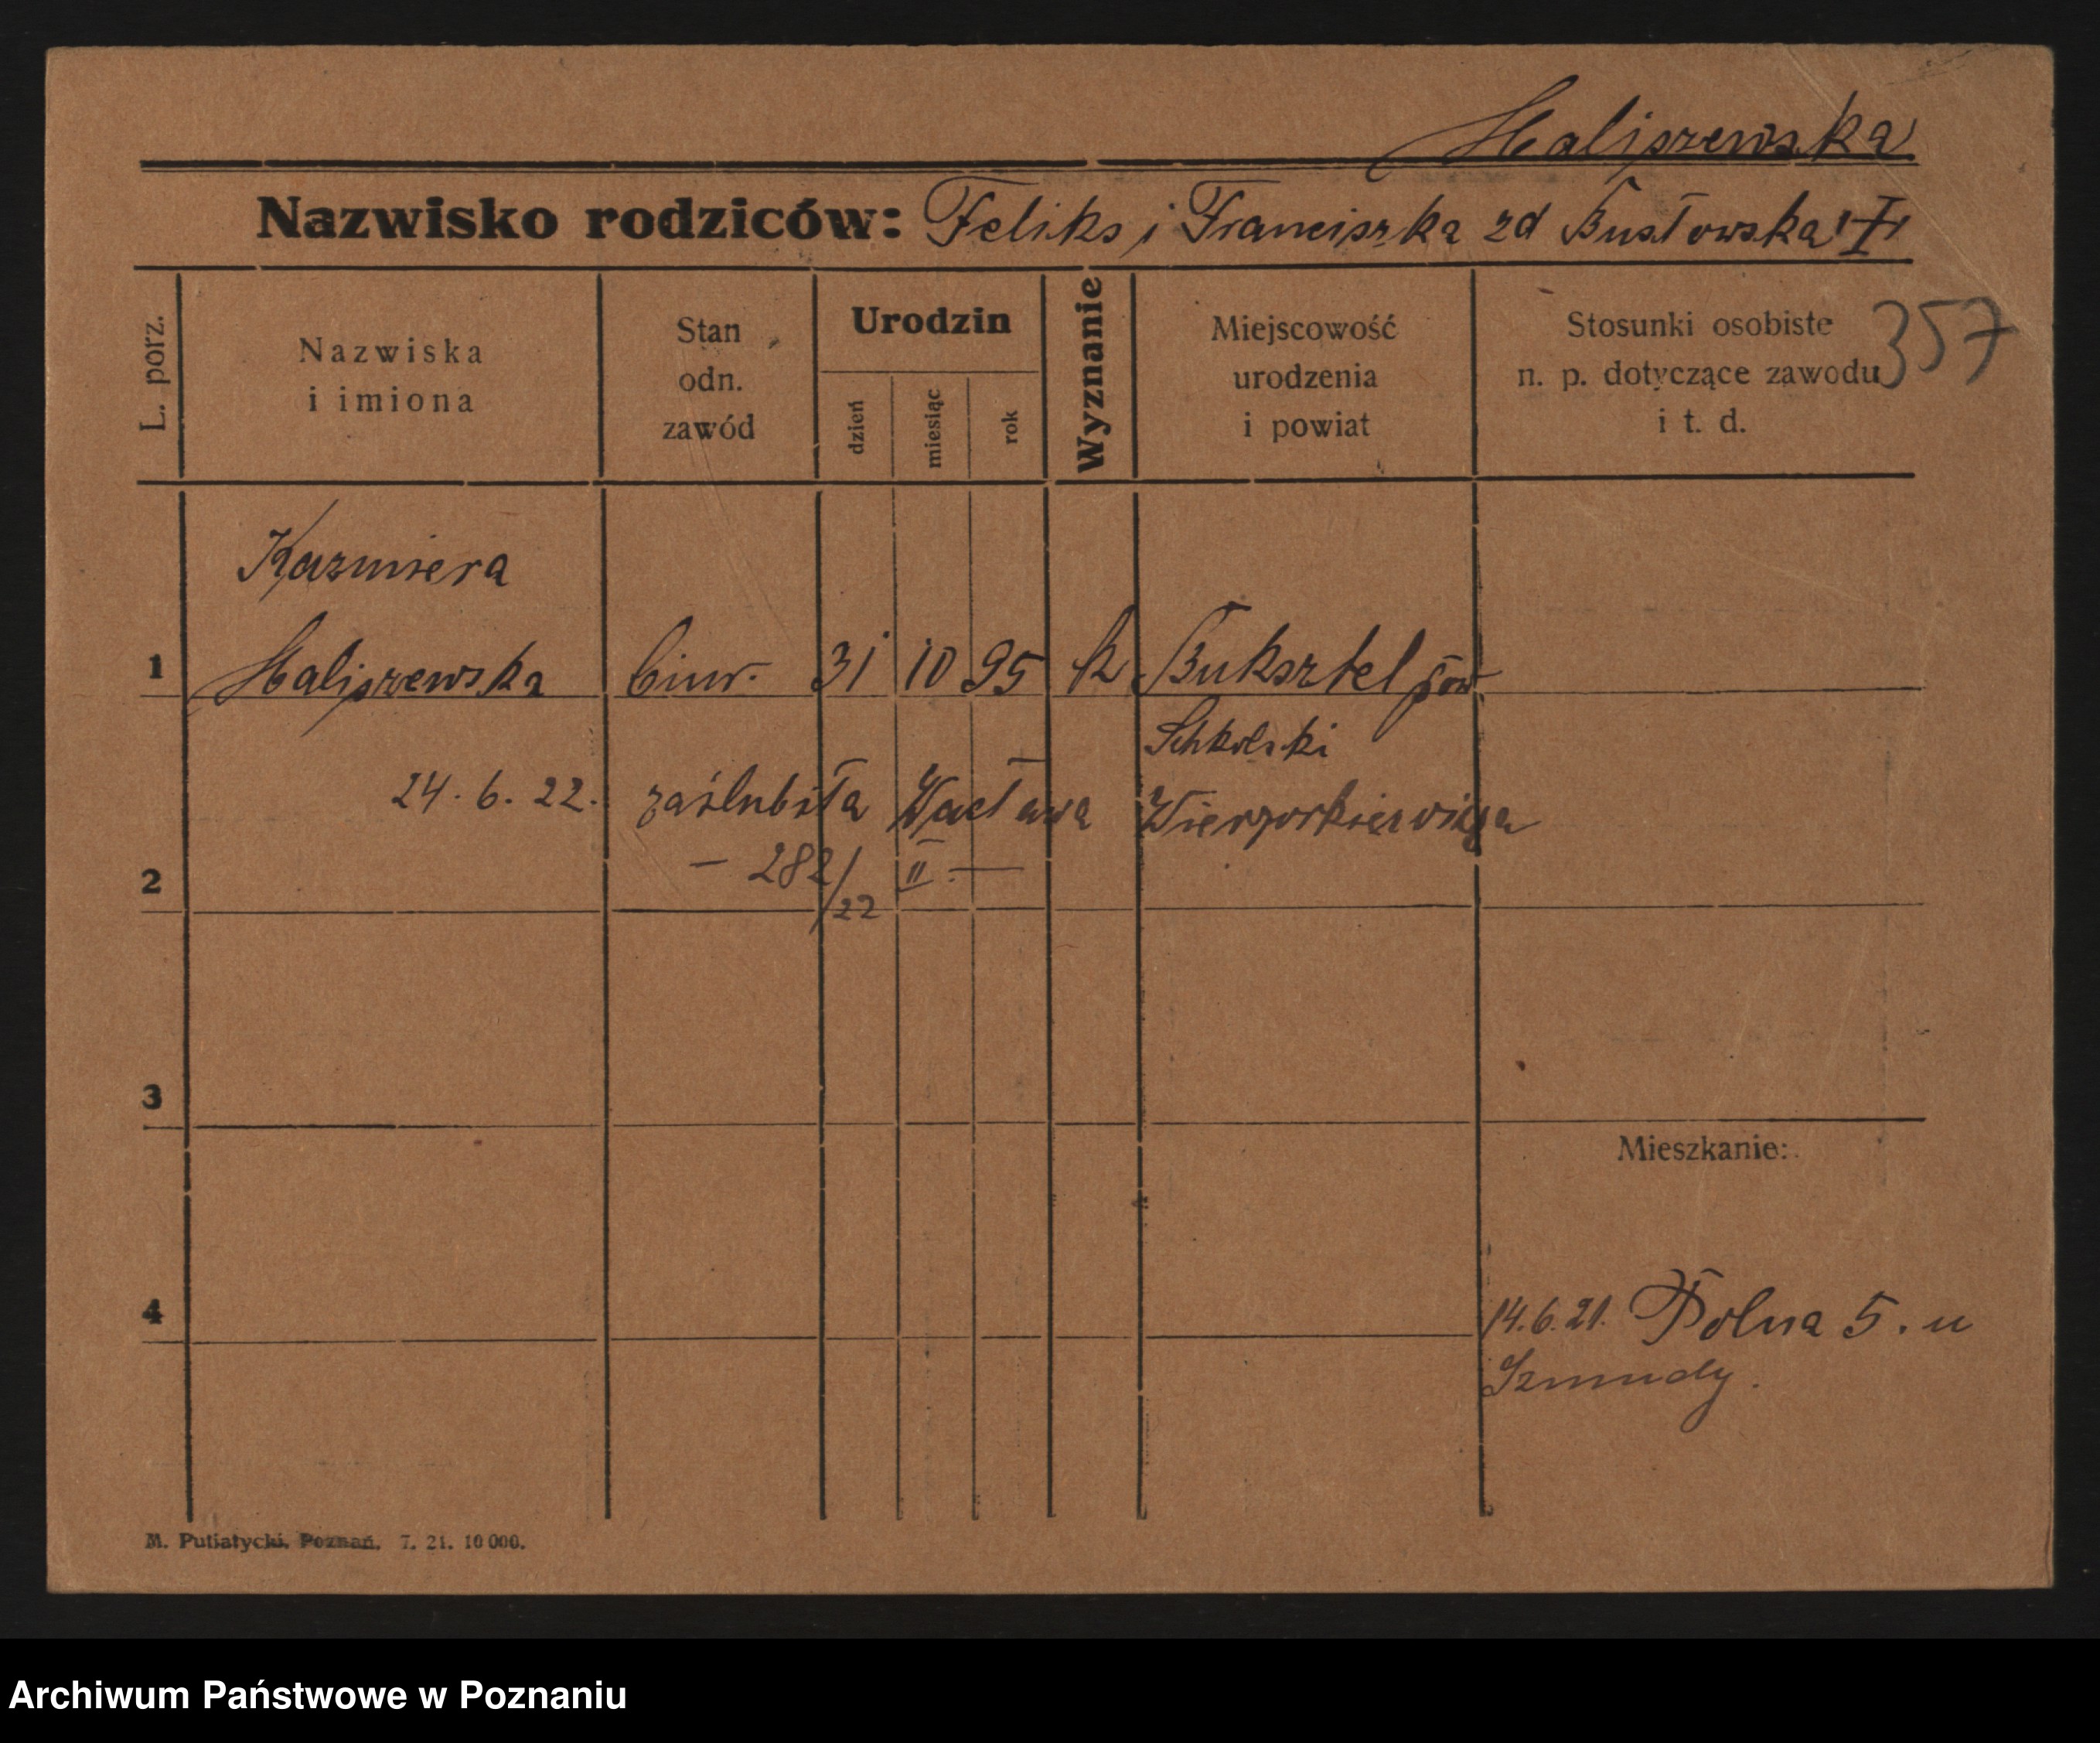 Haliszewska
Nazwisko rodziców: Feliks i Franciszka zd Bustowska
357
L. porz.
Nazwiska
i imiona
Stan
odn.
zawód
Urodzin
dzień
miesiąc
rok
Wyznanie
Miejscowość
urodzenia
i powiat
Stosunki osobiste
n. p. dotyczące zawodu
i t. d.
Kazmiera
1 Haliszewska biur. 31 10 95 k Buksztel pow
Schkolski
24. 6. 22. zaślubiła Wacława Wierzorkiewicza
2 – 282/22 II. —
3
Mieszkanie:
4 14. 6. 21. Polna 5. u
Szmudy.
M. Putiatycki, Poznań, 7. 21. 10 000.
Archiwum Państwowe w Poznaniu